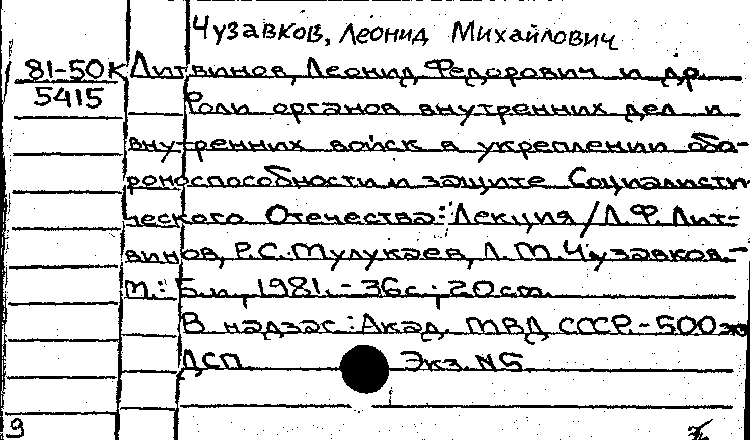 Чузавков, Леонид Михайлович
81-50К Литвинов, Леонид Федорович и др.
5415 Роли органов внутренних дел и
внутренних войск в укреплении обо-
роноспособности и защите Социалисти
ческого Отечества: Лекция / Л.Ф. Лит-
винов, Р.С. Мулукаев, Л.М. Чузавков.-
М.: Б.и., 1981.- 36с.; 20см.
В надзаг: Акад. МВД СССР.- 500 экз
ДСП Экз. №5
9